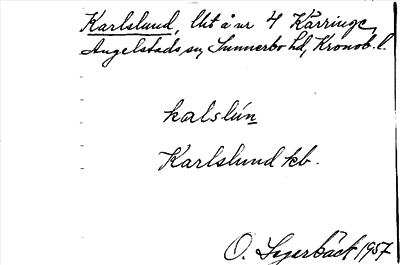 Karlslund, lht å nr 4 Kärringe,
Angelstads sn, Sunnerbo hd, Kronob. l.
kalslún
Karlslund kb.
O. Segerbäck 1957